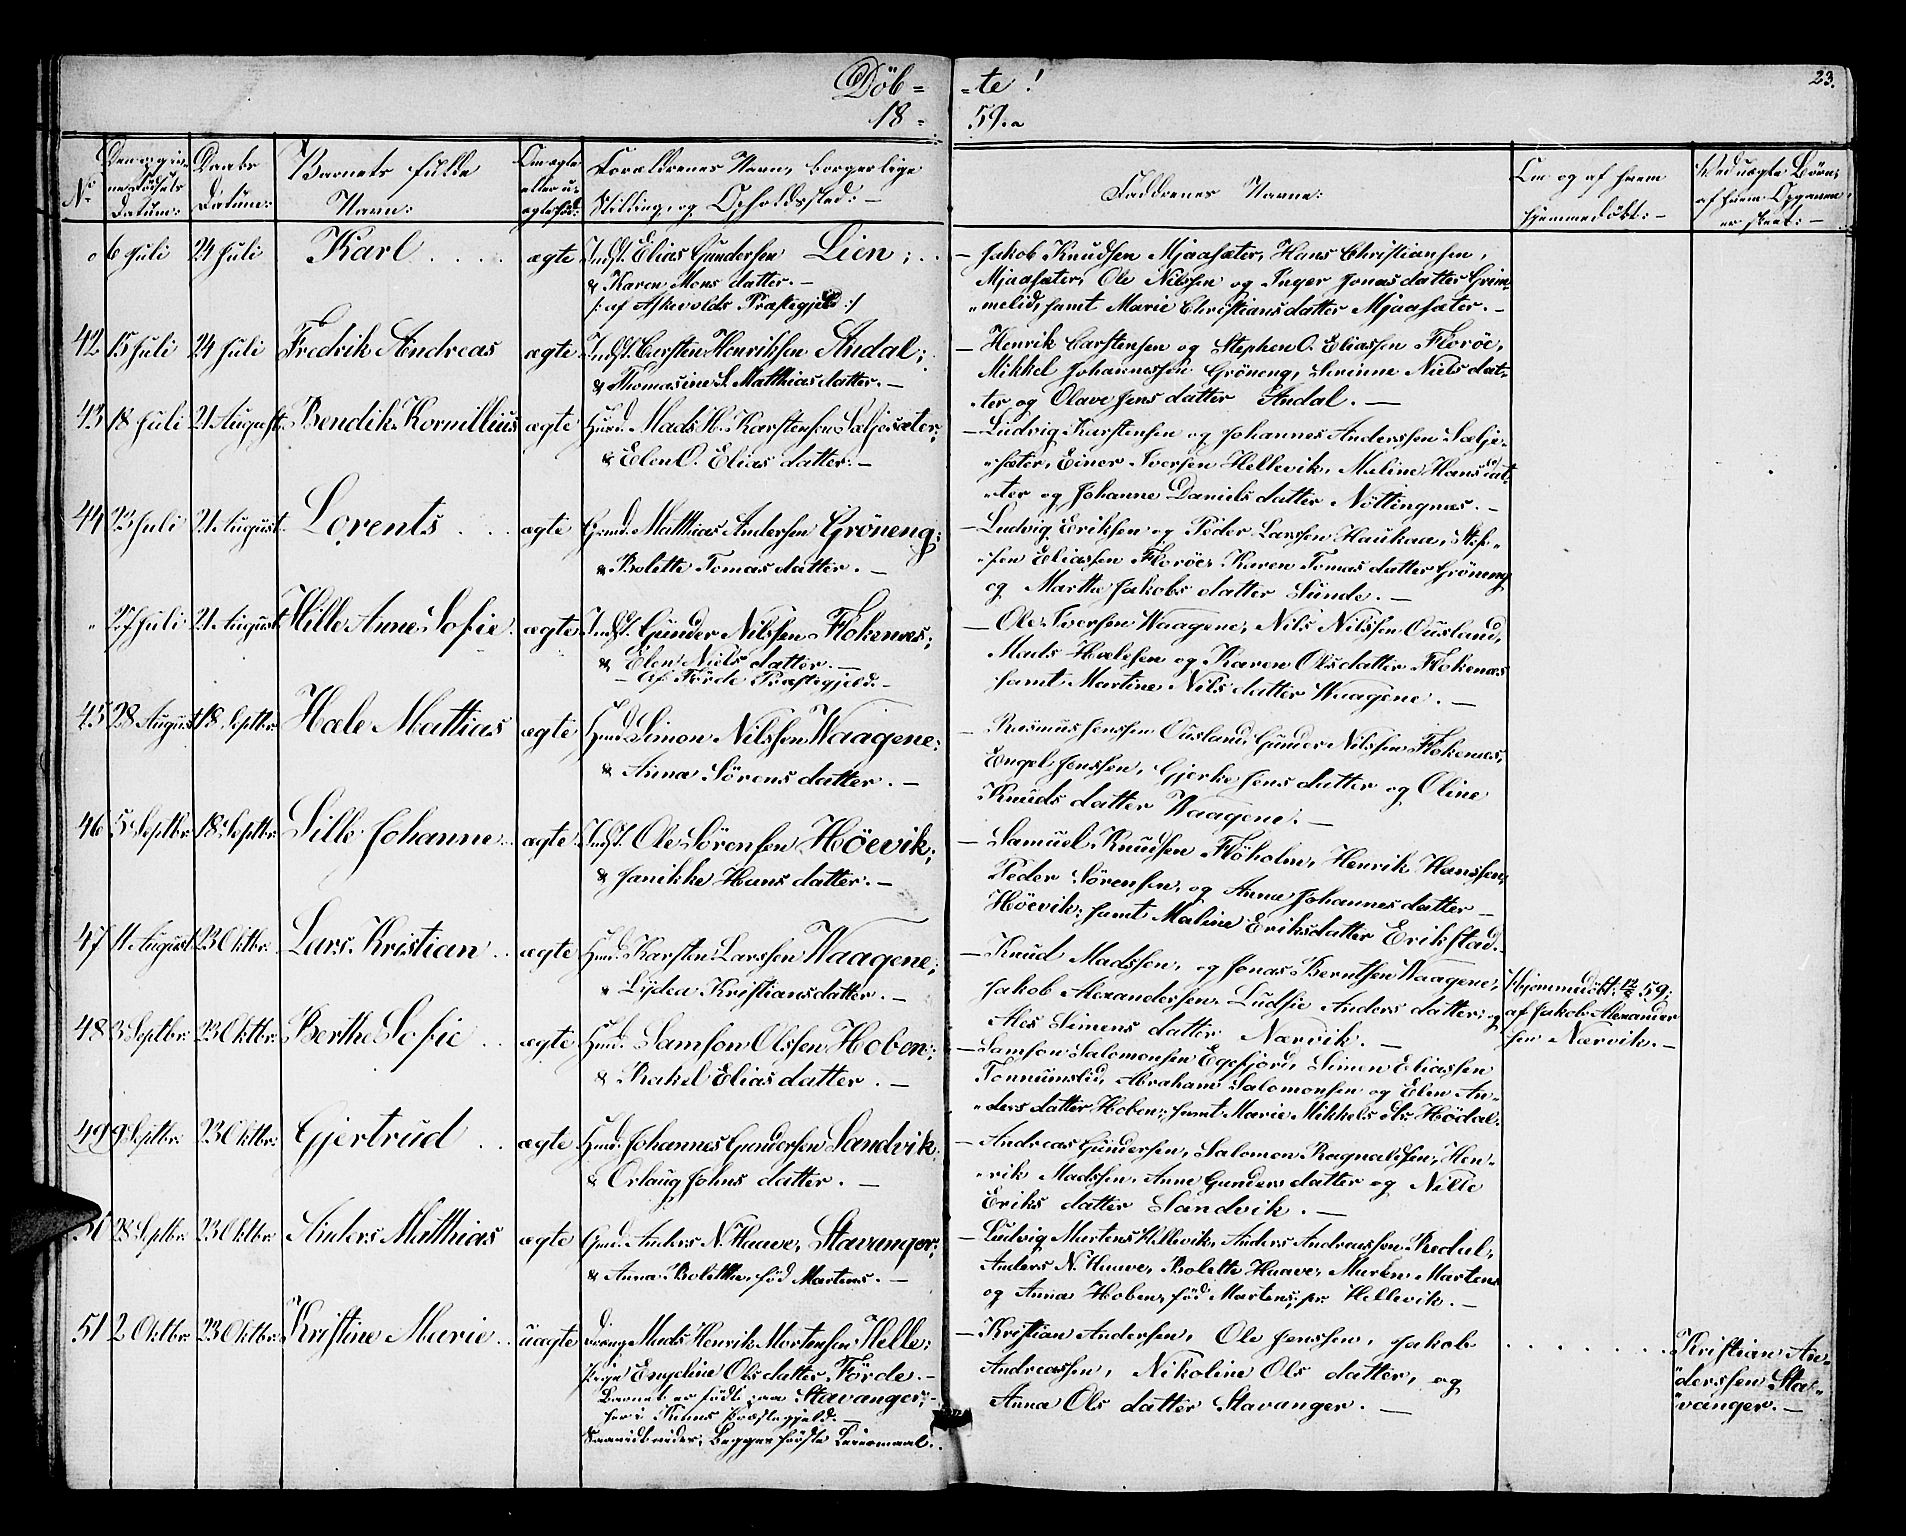 Döb=
18=
-te!
59.
23.
No
Datum:
Daabs
Datum:
Barnets fulde
Navn:
Om ægte
eller u-
ægte fød:
Forældrenes Navn, borgerlige
Stilling, og Opholdssted: —
Faddernes Navne:
Om og af hvem
hjemmedöbt: —
Ved uægte Börn,
af hvem Opgaven
er skeet: —
6 Juli 24 Juli Karl . . . . ægte Indst. Elias Gundersen Lien;
& Karen Mons datter. —
/: af Askevolds Præstegjeld :/
— Jakob Knudsen Mjaasæter, Hans Christiansen,
Mjaasæter, Ole Nilssen og Inger Jonas datter Grim-
"melid, samt Marie Christians datter Mjaasæter. —
42 15 Juli 24 Juli Fredrik Andreas ægte Indst. Carsten Henriksen Andal;
& Thomasine S. Matthias datter. —
— Henrik Carstensen og Stephen O. Eliassen Florøe,
Mikkel Johannessen Gröneng, Serinne Niels dat-
-ter og Olave Jens datter Andal. —
43 18 Juli 21 August Bendik Kornillius ægte Huus. Mads H. Karstensen Sæljesæter;
& Elen O. Elias datter: —
— Ludvig Karstensen og Johannes Anderssen Sælje-
"sæter, Einer Iversen Hellevik, Maline Hans dat-
"ter og Johanne Daniels datter Nöttingnes. —
44 23 Juli 21 August. Lorents . . . ægte Gmd. Matthias Andersen Gröneng;
& Bolette Tomas datter. —
— Ludvig Eriksen og Peder Larssen Haukaa, Stef-
"fen Eliassen Florøe, Karen Tomas datter Gröneng
og Marthe Jakobs datter Sunde. —
" 27 Juli 21 August Hille Anne Sofie. ægte Indst. Gunder Nilssen Flokenæs;
& Elen Niels datter. —
— af Förde Præstegjeld. —
— Ole Iversen Waagene, Nils Nilssen Ousland,
Mads Hælesen og Karen Ols datter Flokenæs
samt Martine Nils datter Waagene. —
45 28 August 18 Septbr. Hæle Mattias ægte Huus. Simon Nilssen Waagene;
& Anna Sörens datter. —
— Rasmus Jenssen Ousland, Gunder Nilssen Flokenæs,
Engel Jenssen, Gjerke Jens datter og Oline
Knuds datter Waagene. —
46 5 Septbr. 18 Septbr. Sille Johanne . . ægte Indst. Ole Sörensen Höevik;
& Janikke Hans datter. —
— Samuel Knudsen Flöholm, Henrik Hanssen,
Peder Sörensen, og Anna Johannes datter —
Höevik, samt Maline Eriksdatter Erikstad. —
47 11 August. 23 Oktbr. Lars Kristian . . ægte Huus. Karsten Larssen Waagene;
& Lydea Kristiansdatter. —
— Knud Madssen, og Jonas Berntsen Waagene,
Jakob Alexandersen, Ludsie Anders datter; og
Ales Simens datter Nærvik. —
Hjemmedöbt 12/8 59;
af Jakob Alexander
sen Nærvik. —
48 3 Septbr. 23 Oktbr. Berthe Sofie . . ægte Huus. Samson Olssen Hoben;
& Rakel Elias datter . —
— Samson Salomonsen Egefjord, Simon Eliassen
Tonnumslid, Abraham Salomonsen og Elen An-
"ders datter Hoben; samt Marie Mikkels dtr. Hödal.
49 9 Septbr. 23 Oktbr. Gjertrud . . ægte Huus. Johannes Gundersen Sandvik;
& Orlaug Johns datter . —
— Andreas Gundersen, Salomon Ragnaldsen, Hen-
"rik Madssen, Anne Gunders datter og Nille
Eriks datter Sandvik. —
50 28 Septbr. 23 Oktbr. Anders Matthias ægte Gmd. Anders N. Haave, Stavanger;
& Anna Bolethe, föd Martens. —
— Ludvig Martens Hellevik, Anders Andreassen Redal,
Anders N. Haave, Bolette Haave, Maren Martens
og Anna Hoben, föd Martens, pr. Hellevik. —
51 2 Oktbr. 23 Oktbr. Kristine Marie . . uægte Dreng Mads Henrik Mortensen Helle;
Pige Engeline Ols datter Förde. —
Barnet er födt paa Stavanger; —
her i Kinns Præstegjeld. —
begges förste Leiermaal. .
— Kristian Andersen, Ole Jenssen, Jakob
Andreassen, Nikoline Ols datter, og
Anna Ols datter Stavanger. —
Kristian An-
"derssen Sta-
"vanger. —